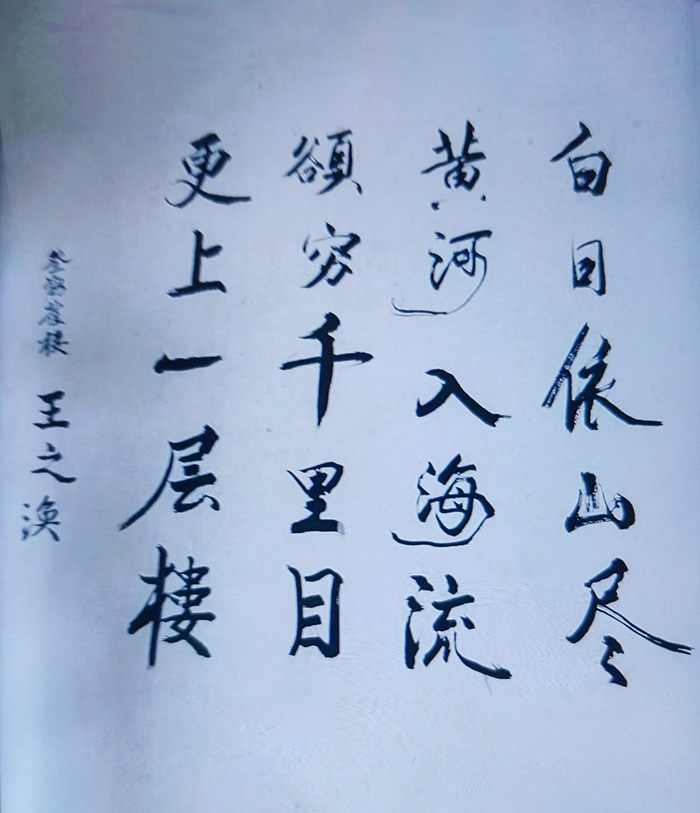 白日依山尽
黄河入海流
欲穷千里目
更上一层樓
登鹳雀楼 王之涣